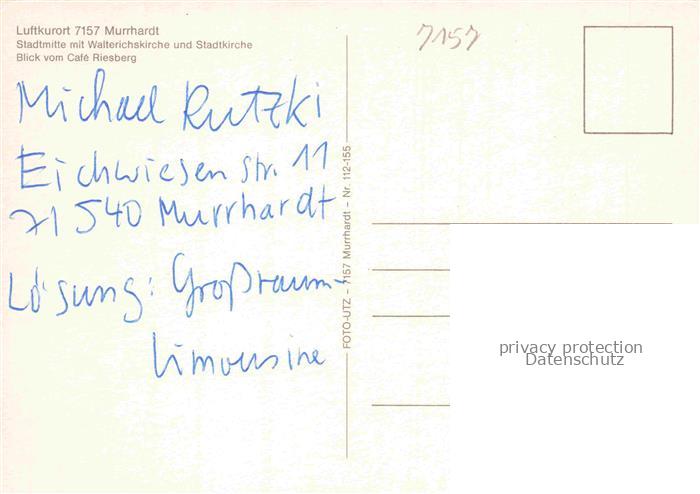 Luftkurort 7157 Murrhardt
Stadtmitte mit Walterichskirche und Stadtkirche
Blick vom Café Riesberg
7157
Michael Rutzki
Eichwiesenstr. 11
71540 Murrhardt
Lösung: Großraum-
limousine
FOTO-UTZ - 7157 Murrhardt - Nr. 112-155
privacy protection
Datenschutz